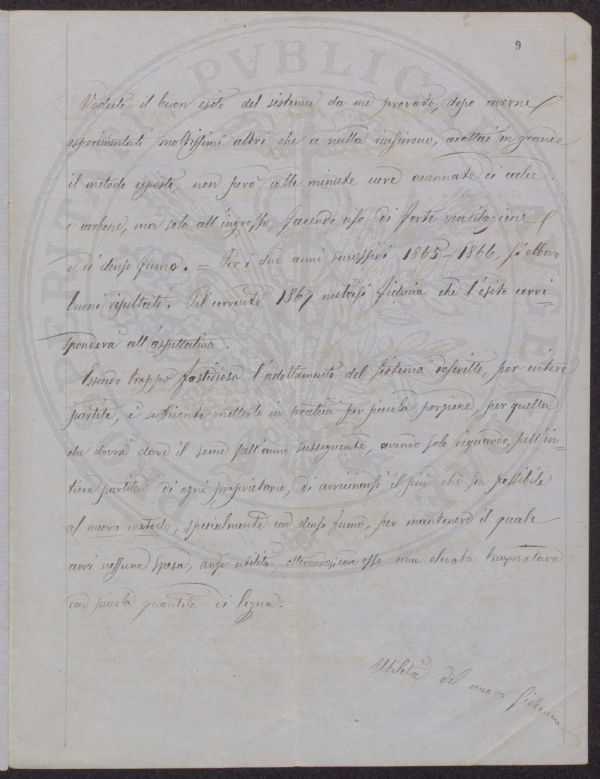 9
Veduto il buon esito del sistema da me provato, dopo averne
esperimentati moltissimi altri che a nulla riuscirono, adottai in grande
il metodo esposto, non però colle minute cure accennate di calce
e carbone, ma solo all'ingrosso, facendo uso di forte ventilazione
e di denso fumo. = Per i due anni successivi 1865-1866, si ebbero
buoni risultati. Pel corrente 1867 nutresi fiducia che l'esito corri=
sponderà all'aspettativa.
Essendo troppo fastidioso l'adottamento del sistema descritto, per intere
partite, è sufficiente metterlo in pratica per piccola porzione, per quella
che dovrà dare il seme pell'anno susseguente, avendo solo riguardo, pell'in=
tiera partita di ogni proprietario, di avvicinarsi il più che sia possibile
al nuovo metodo, specialmente con denso fumo, per mantenere il quale
avvi nessuna spesa, anzi utilità, ottenendosi con esso una elevata temperatura
con piccola quantità di legna.
Utilità del nuovo sistema
PVBLIC